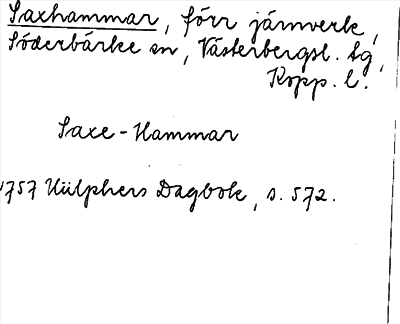 Saxhammar, förr järnverk,
Söderbärke sn, Västerbergsl. tg,
Kopp. l.
Saxe-Hammar
1757 Hülphers Dagbok, s. 572.